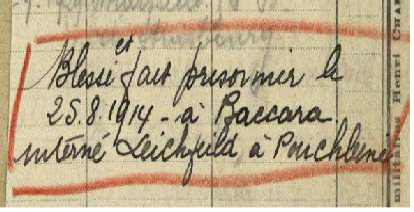 et
Blessé fait prisonnier le
25.8.1914 - à Baccara
interné Leichfeild à Pouchheneu
militaires Henri CHA